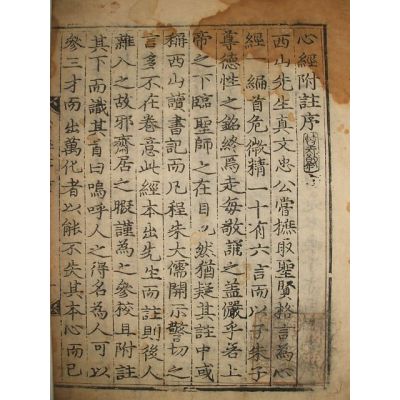 心經附註序
西山先生真文忠公嘗摭取聖賢格言為心
經一編首危微精一十有六言而以子朱子
尊德性之銘終焉走每敬誦之蓋儼乎若上
帝之下臨聖師之在目以然猶疑其註中或
稱西山讀書記而凡程朱大儒開示警切之
言多不在卷意此經本出先生而註則後人
雜入之故邪齋居之暇謹為之參校且附註
其下而識其首曰嗚呼人之得名為人可以
參三才而出萬化者以能不失其本心而已